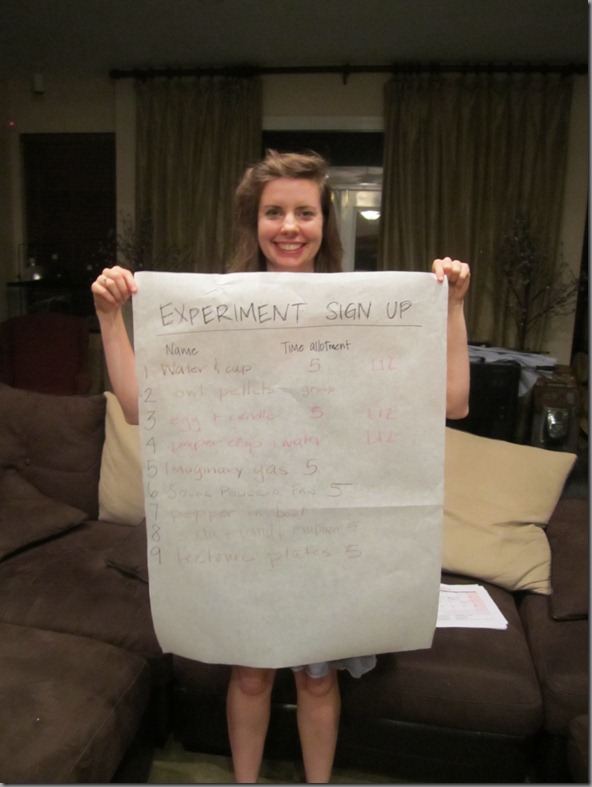 EXPERIMENT SIGN UP
Name Time allotment
1 Water & cup 5 LIZ
2 owl pellets group
3 egg + candle 5 LIZ
4 paper clips water LIZ
5 Imaginary gas 5
6 Solar Powered Fan 5
7 pepper in bowl
8
9 tectonic plates 5